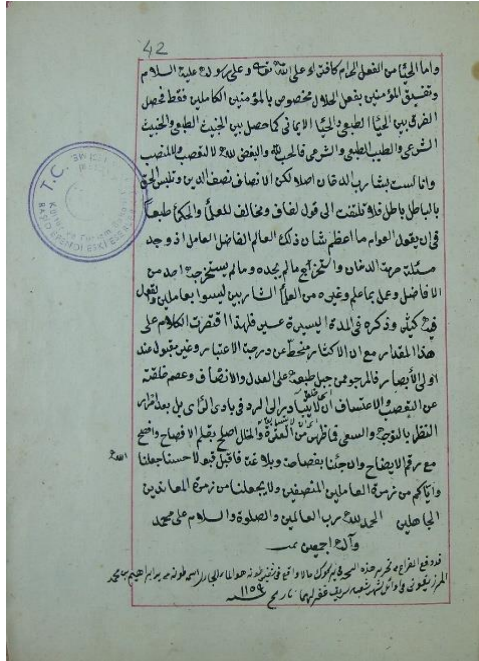 42
واما الحياء من الفعل الحرام كافتراء على الله تعالى وعلى رسوله عليه السلام
وتفسيق المؤمنين بفعل الحلال مخصوص بالمؤمنين الكاملين فقط فحصل
الفرق بين الحياء الطبعى والحياء الايمانى كما حصل بين الخبيث الطبعى والخبيث
الشرعى والطيب الطبعى والشرعى فالحب لله والبغض لله لا للتعصب وللمنصب
وانا لست بشارب الدخان اصلا لكن الانصاف نصف الدين وتلبس الحق
بالباطل باطل فلا تلتفت الى قول لفاف ومخالف للعلماء والحكماء طبعا
فى ان يقول العوام ما اعظم شان ذلك العالم الفاضل العامل اذ وجد
مسئلة حرمة الدخان واستخرج ما لم يجده وما لم يستخرجه احد من
الافاضل وعمل بما علم وغيره من العلماء الشاربين ليسوا بعاملين ولفعل
وذكره فى المدة اليسيرة عسير فلهذا اقتصرت الكلام على
هذا المقدار مع ان الاكثار منحط عن درجة الاعتبار وغير مقبول عند
اولى الابصار فالمرجو ممن جبل طبعه على العدل والانصاف وعصم خلقته
عن التعصب والاعتساف ان لا يتبادر الى الرد فى بادى الرأى بل بعد
النظر بالتوجه والسعى فما ظهر من والخلل اصلح بقلم الافصاح واضح
مع رقم الايضاح وان جئنا بفصاحة وبلاغة فاقبل قبولا حسنا جعلنا الله
واياكم من زمرة العاملين المنصفين ولا يجعلنا من زمرة المعاندين
الجاهلين الحمد لله رب العالمين والصلوة والسلام على محمد
وآله اجمعين تمت
قد وقع الفراغ من تحرير هذه فى ابراهيم بن محمد
فى اوائل شهر شعبان شريف غفر لهما تاريخ سنة ١١٥٩
T.C.